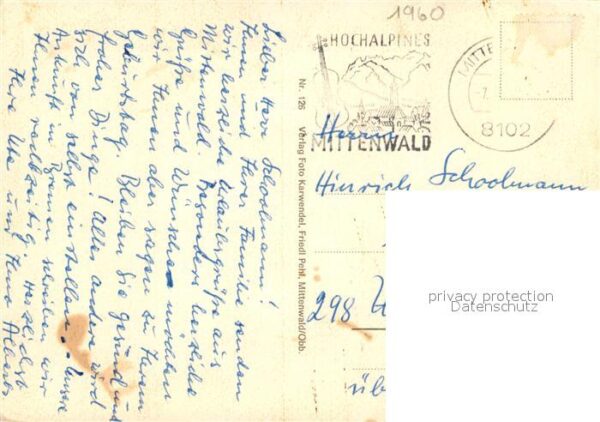 Lieber Herr Schoolmann!
Ihnen und Ihrer Familie senden
wir herzliche Urlaubsgrüße aus
Mittenwald. Besonders herzliche
Grüße und Wünsche möchten
wir Ihnen aber sagen zu Ihrem
Geburtstag. Bleiben Sie gesund und
froher Dinge! Alles andere wird
sich von selbst einstellen. - Unsere
Ankunft in Bremen schreiben wir
Ihnen rechtzeitig. Herzlichst
Ihre Ute und Jens Albers
Nr. 126 Verlag Foto Karwendel, Friedl Pehl, Mittenwald/Obb.
1960
HOCHALPINES
MITTENWALD
MITTE
8102
Herrn
Hinrich Schoolmann
298
üb
privacy protection
Datenschutz